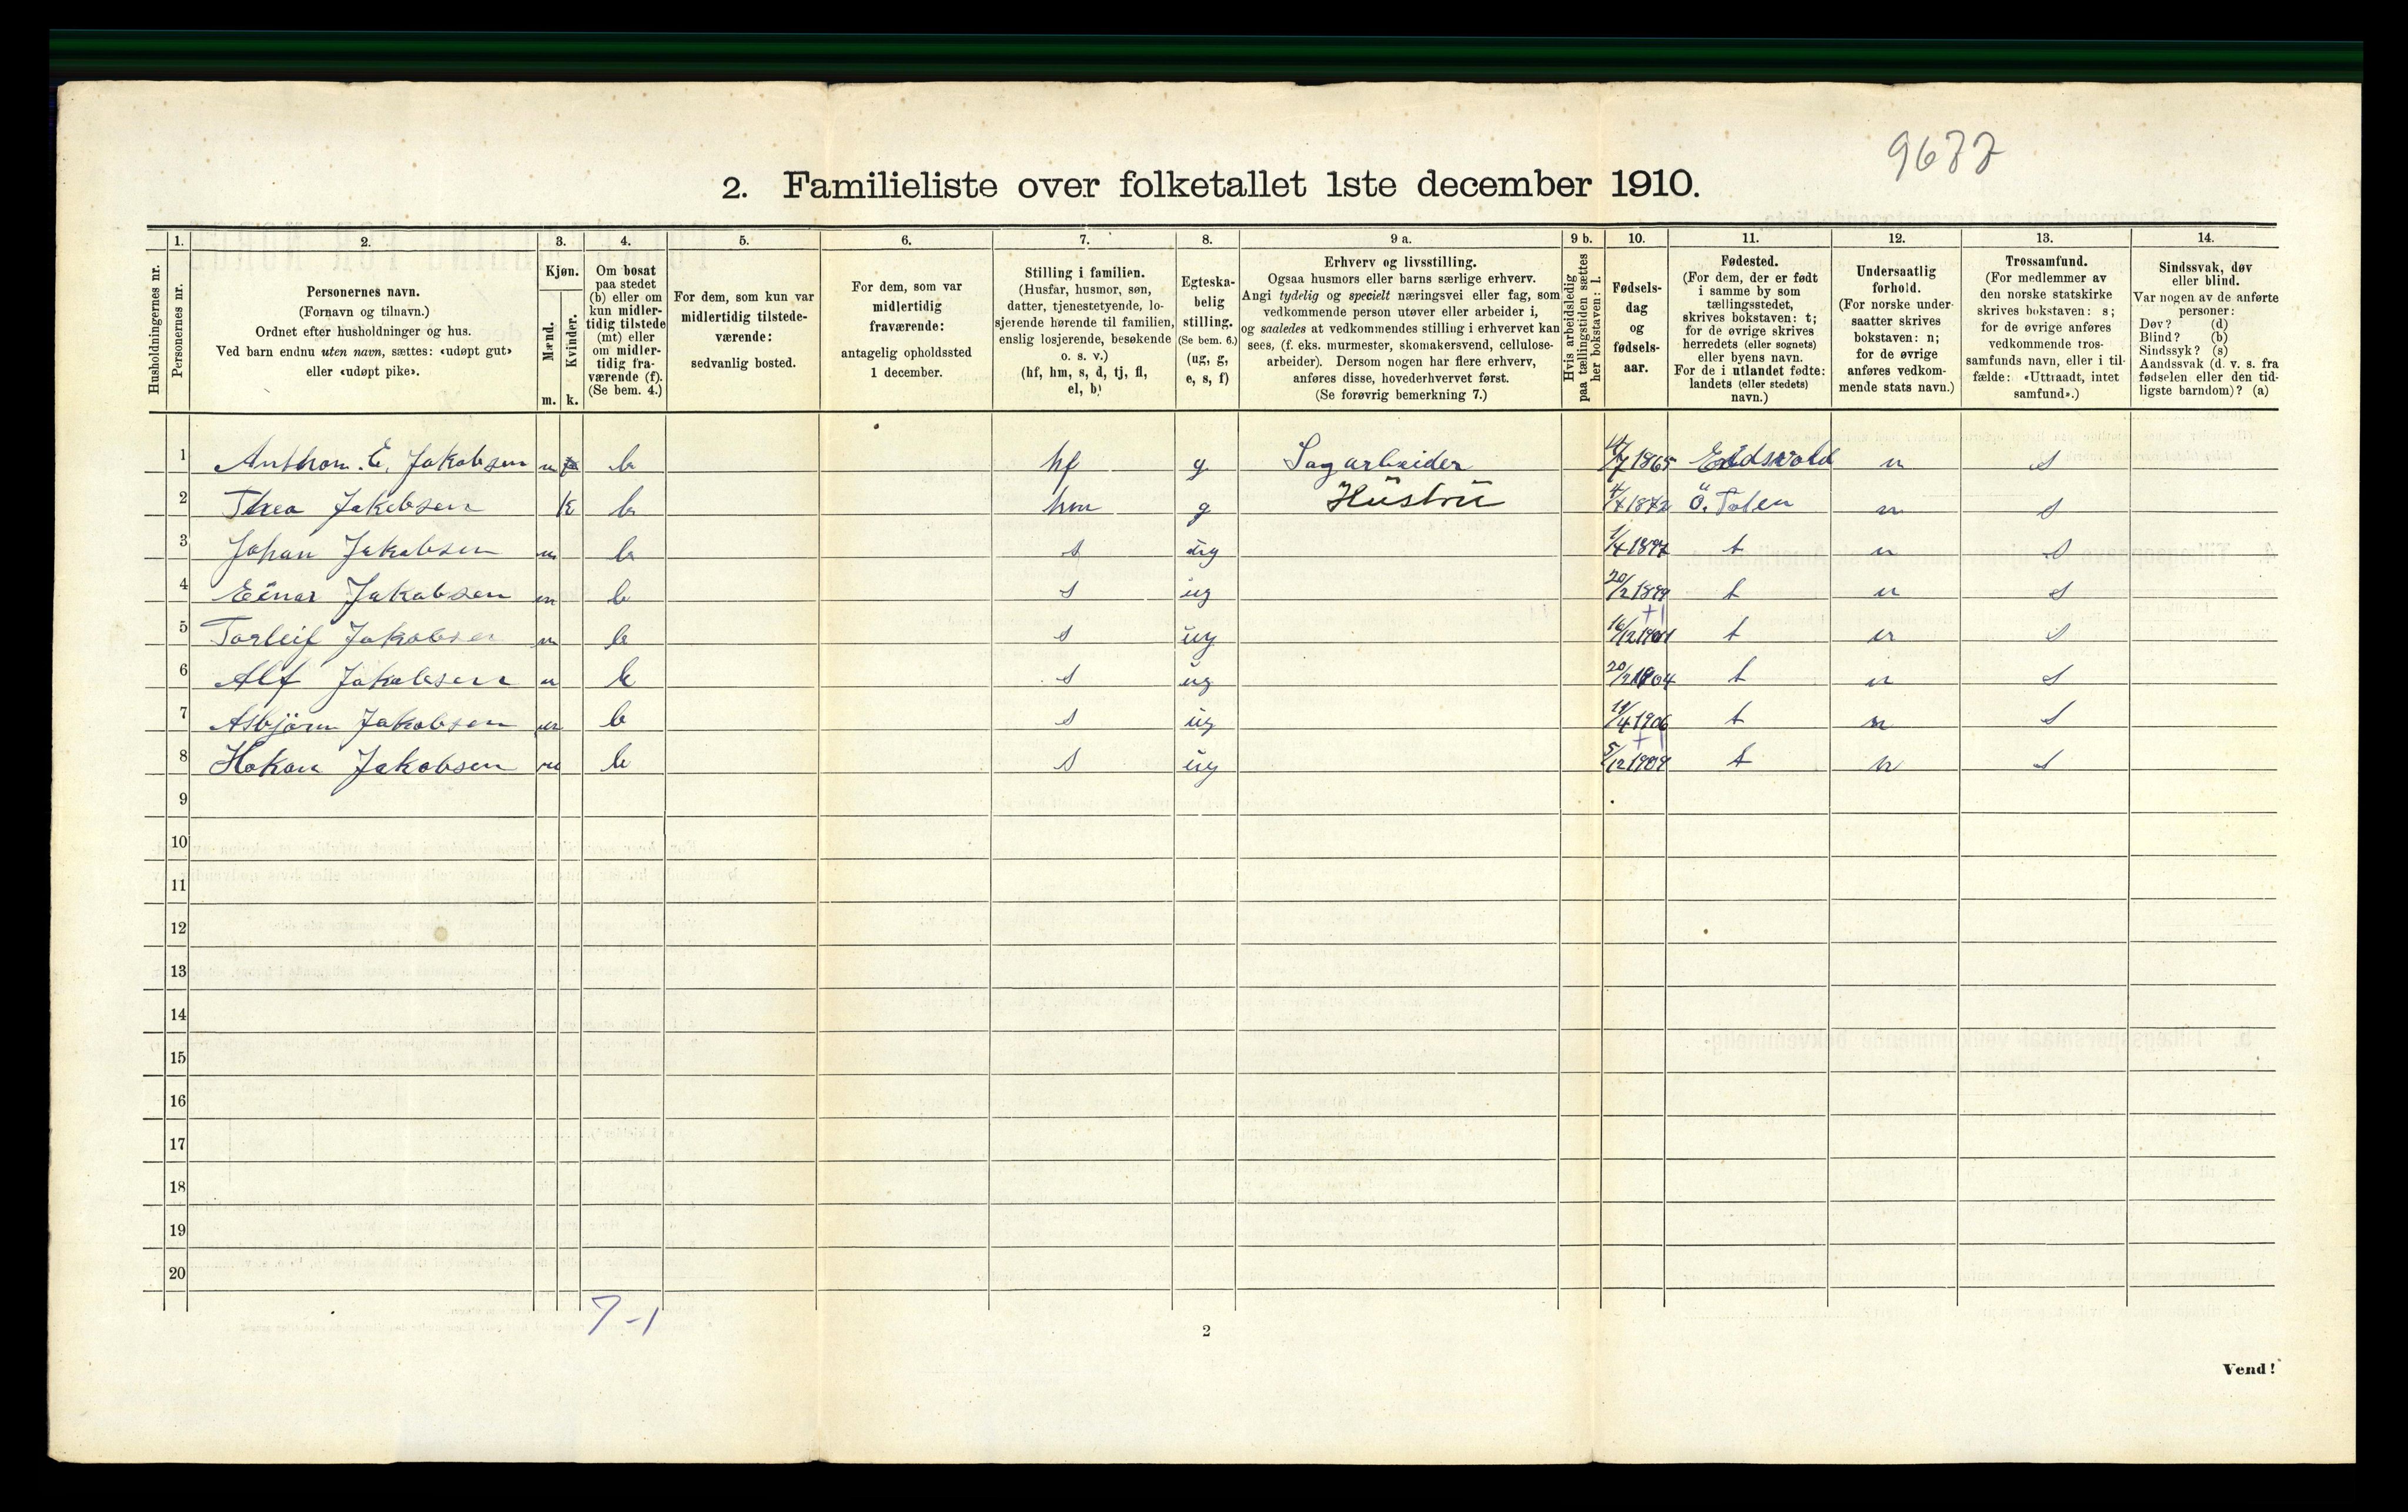 9677
2. Familieliste over folketallet 1ste december 1910.
Husholdningernes nr.
1. Personernes nr.
2. Personernes navn.
(Fornavn og tilnavn.)
Ordnet efter husholdninger og hus.
Ved barn endnu uten navn, sættes: «udøpt gut»
eller «udøpt pike».
3. Kjøn.
Mænd. m.
Kvinder. k.
4. Om bosat
paa stedet
(b) eller om
kun midler-
tidig tilstede
(mt) eller
om midler-
tidig fra-
værende (f).
(Se bem. 4.)
5. For dem, som kun var
midlertidig tilstede-
værende:
sedvanlig bosted.
6. For dem, som var
midlertidig
fraværende:
antagelig opholdssted
1 december.
7. Stilling i familien.
(Husfar, husmor, søn,
datter, tjenestetyende, lo-
sjerende hørende til familien,
enslig losjerende, besøkende
o. s. v.)
(hf, hm, s, d, tj, fl,
el, b)
8. Egteska-
belig
stilling.
(Se bem. 6.)
(ug, g,
e, s, f)
9 a. Erhverv og livsstilling.
Ogsaa husmors eller barns særlige erhverv.
Angi tydelig og specielt næringsvei eller fag, som
vedkommende person utøver eller arbeider i,
og saaledes at vedkommendes stilling i erhvervet kan
sees, (f. eks. murmester, skomakersvend, cellulose-
arbeider). Dersom nogen har flere erhverv,
anføres disse, hovederhvervet først.
(Se forøvrig bemerkning 7.)
9 b. Hvis arbeidsledig
paa tællingstiden sættes
her bokstaven: l.
10. Fødsels-
dag
og
fødsels-
aar.
11. Fødested.
(For dem, der er født
i samme by som
tællingsstedet,
skrives bokstaven: t;
for de øvrige skrives
herredets (eller sognets)
eller byens navn.
For de i utlandet fødte:
landets (eller stedets)
navn.)
12. Undersaatlig
forhold.
(For norske under-
saatter skrives
bokstaven: n;
for de øvrige
anføres vedkom-
mende stats navn.)
13. Trossamfund.
(For medlemmer av
den norske statskirke
skrives bokstaven: s;
for de øvrige anføres
vedkommende tros-
samfunds navn, eller i til-
fælde: «Uttraadt, intet
samfund».)
14. Sindssvak, døv
eller blind.
Var nogen av de anførte
personer:
Døv? (d)
Blind? (b)
Sindssyk? (s)
Aandssvak (d. v. s. fra
fødselen eller den tid-
ligste barndom)? (a)
1 Anthon. E. Jakobsen m b hf g Sagarbeider 1865 Eidsvold n s
2 Thea Jakobsen k b hm g Hustru 4/4 1872 Ö. Toten n s
3 Johan Jakobsen m b s ug 1/4 1897 t n s
4 Einar Jakobsen m b s ug 20/2 1899 t n s
5 Torleif Jakobsen m b s ug 16/12 1901 t n s
6 Alf Jakobsen m b s ug 20/2 1904 t n s
7 Asbjörn Jakobsen m b s ug 11/4 1906 t n s
8 Hakon Jakobsen m b s ug 5/12 1909 t n s
9
10
11
12
13
14
15
16
17
18
19
20
7-1
2
Vend!